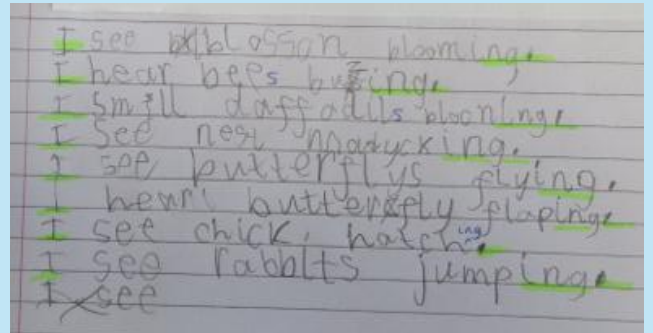 I see blosson blooming.
I hear bees buzing.
I smell daffadils blooning.
I see nest
I see butterflys flying.
I hear butterfly flaping.
I see chick hatching.
I see rabbits jumping.
I see